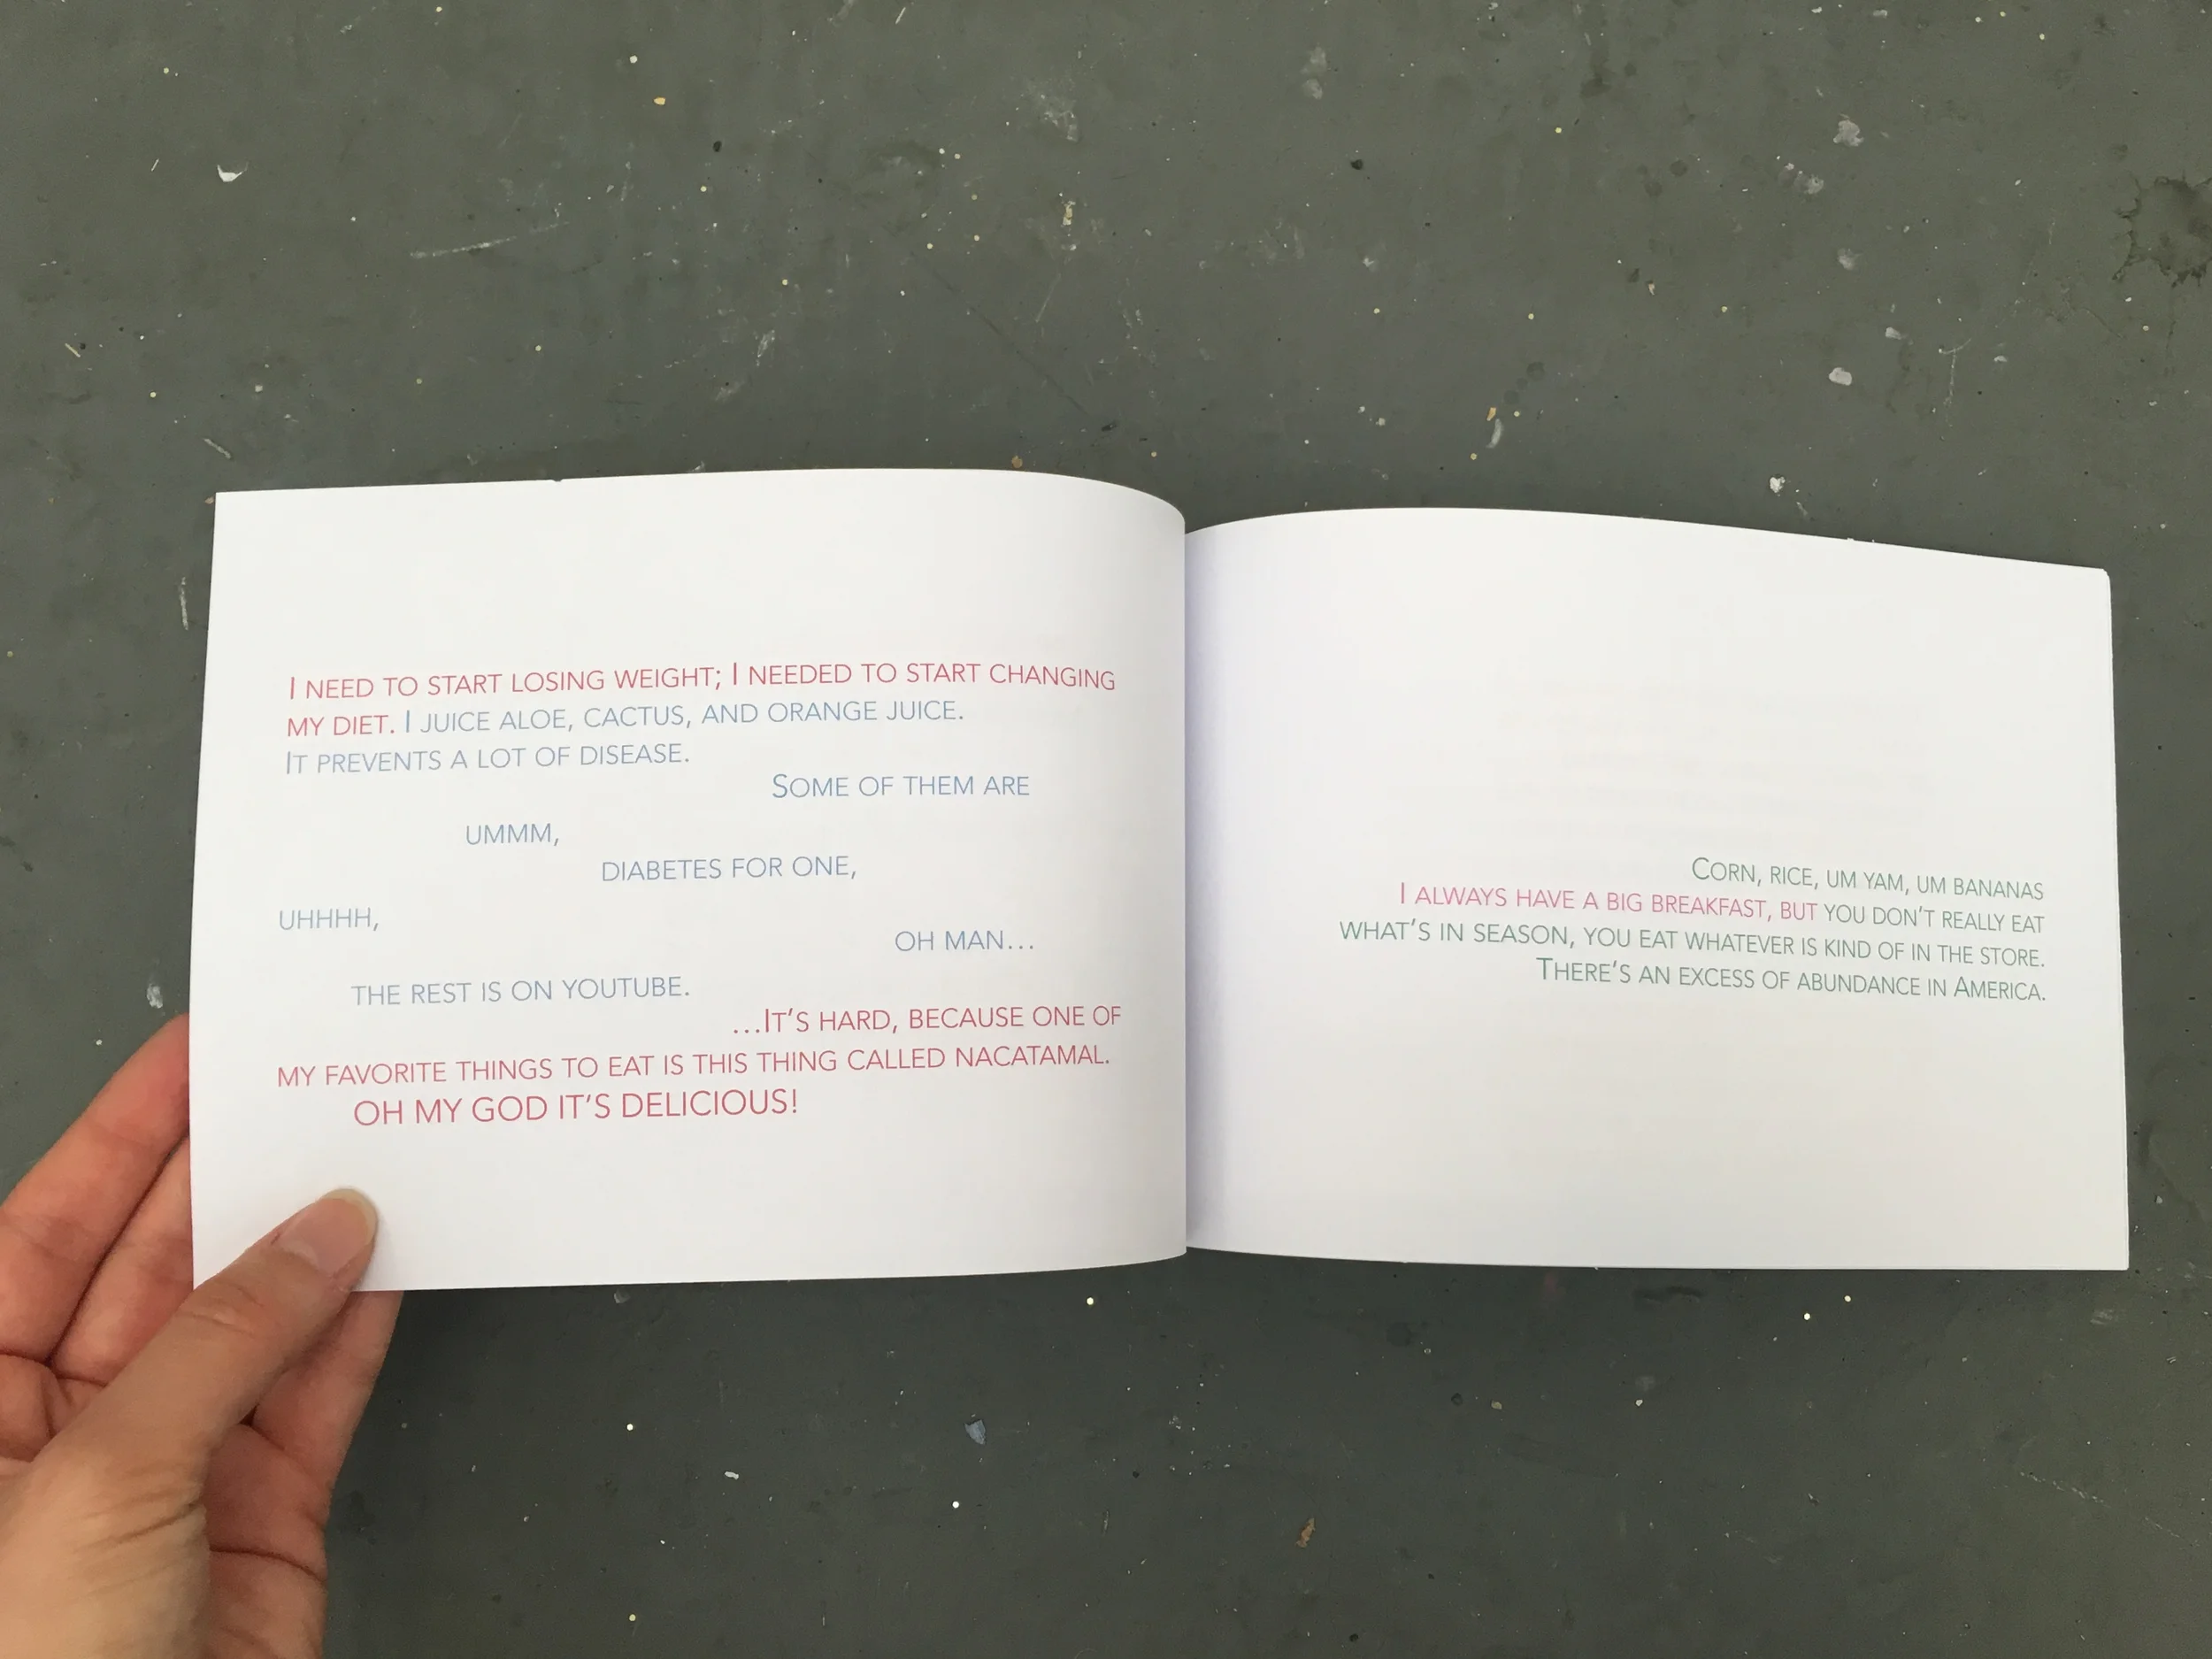 I NEED TO START LOSING WEIGHT; I NEEDED TO START CHANGING
MY DIET. I JUICE ALOE, CACTUS, AND ORANGE JUICE.
IT PREVENTS A LOT OF DISEASE.
SOME OF THEM ARE
UMMM,
DIABETES FOR ONE,
UHHHH,
OH MAN...
THE REST IS ON YOUTUBE.
...IT'S HARD, BECAUSE ONE OF
MY FAVORITE THINGS TO EAT IS THIS THING CALLED NACATAMAL.
OH MY GOD IT'S DELICIOUS!
CORN, RICE, UM YAM, UM BANANAS
I ALWAYS HAVE A BIG BREAKFAST, BUT YOU DON'T REALLY EAT
WHAT'S IN SEASON, YOU EAT WHATEVER IS KIND OF IN THE STORE.
THERE'S AN EXCESS OF ABUNDANCE IN AMERICA.